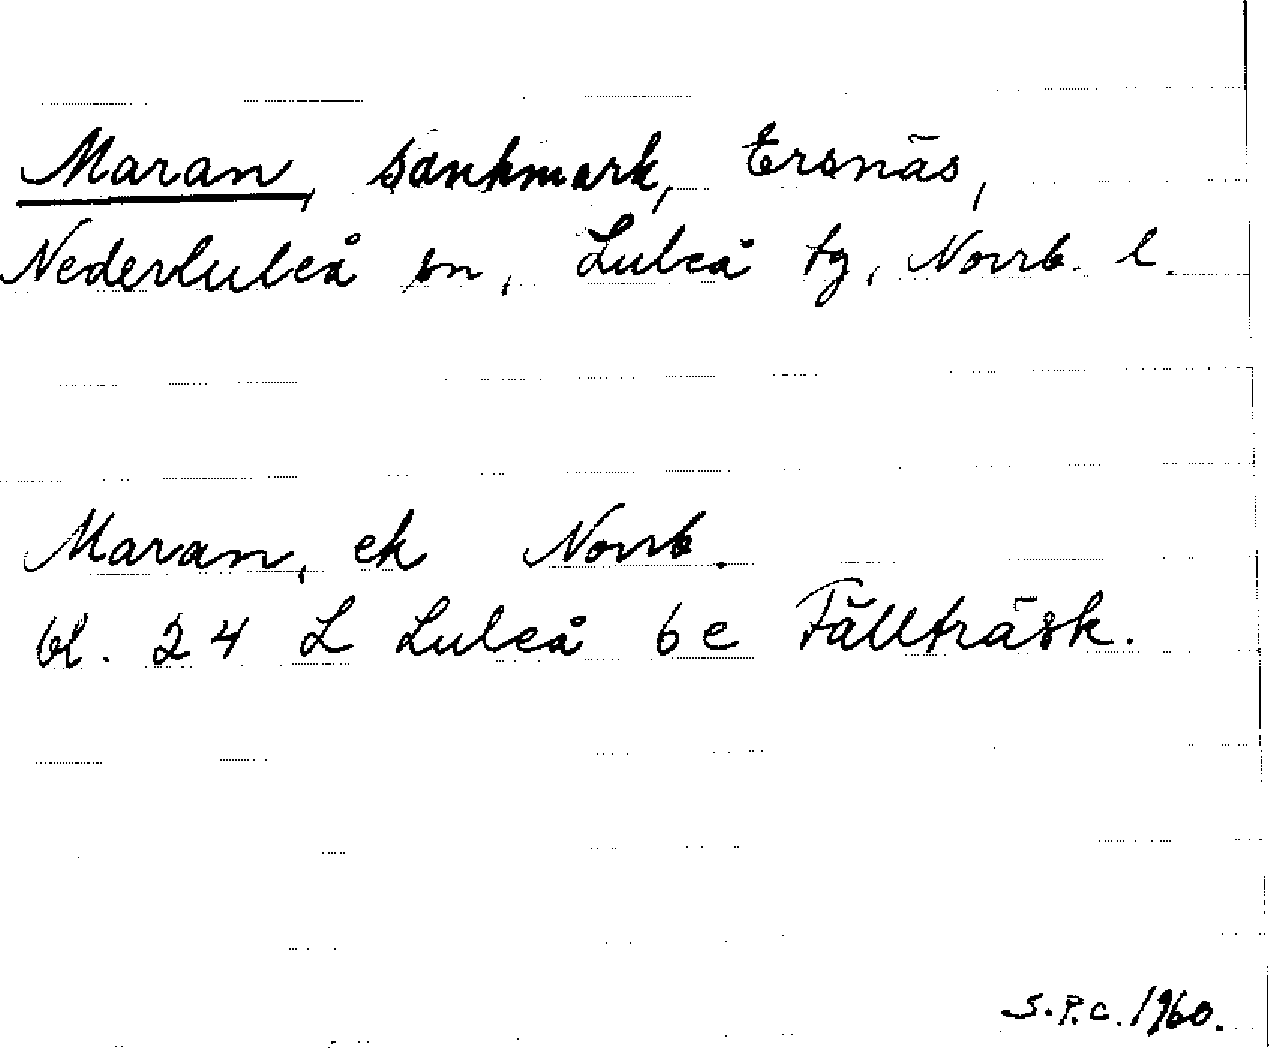 Maran, sankmark, Ersnäs,
Nederluleå sn, Luleå tg, Norrb. l.
Maran, ek Norrb.
bl. 24 L Luleå 6 e Fällträsk.
S.P.C. 1960.